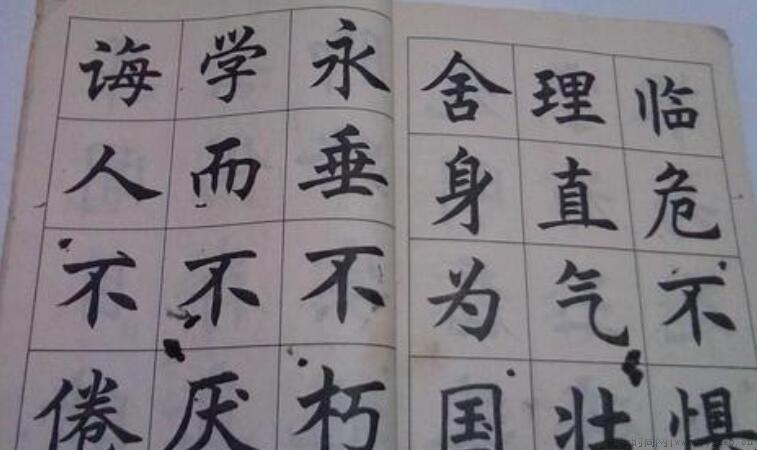 临危不惧
理直气壮
舍身为国
永垂不朽
学而不厌
诲人不倦